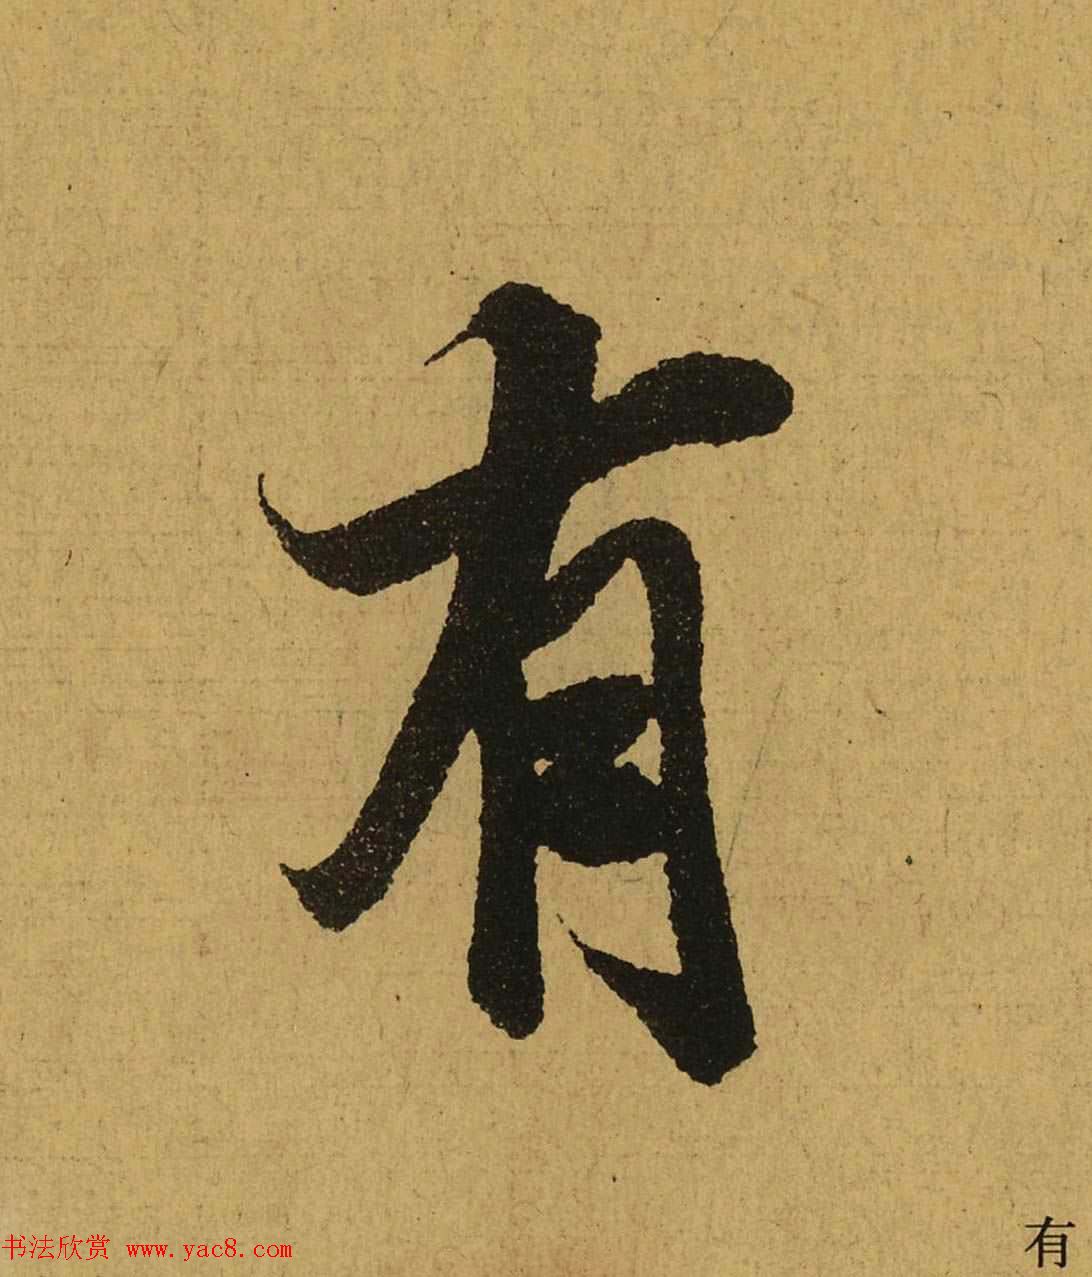 有
书法欣赏 www.yac8.com
有